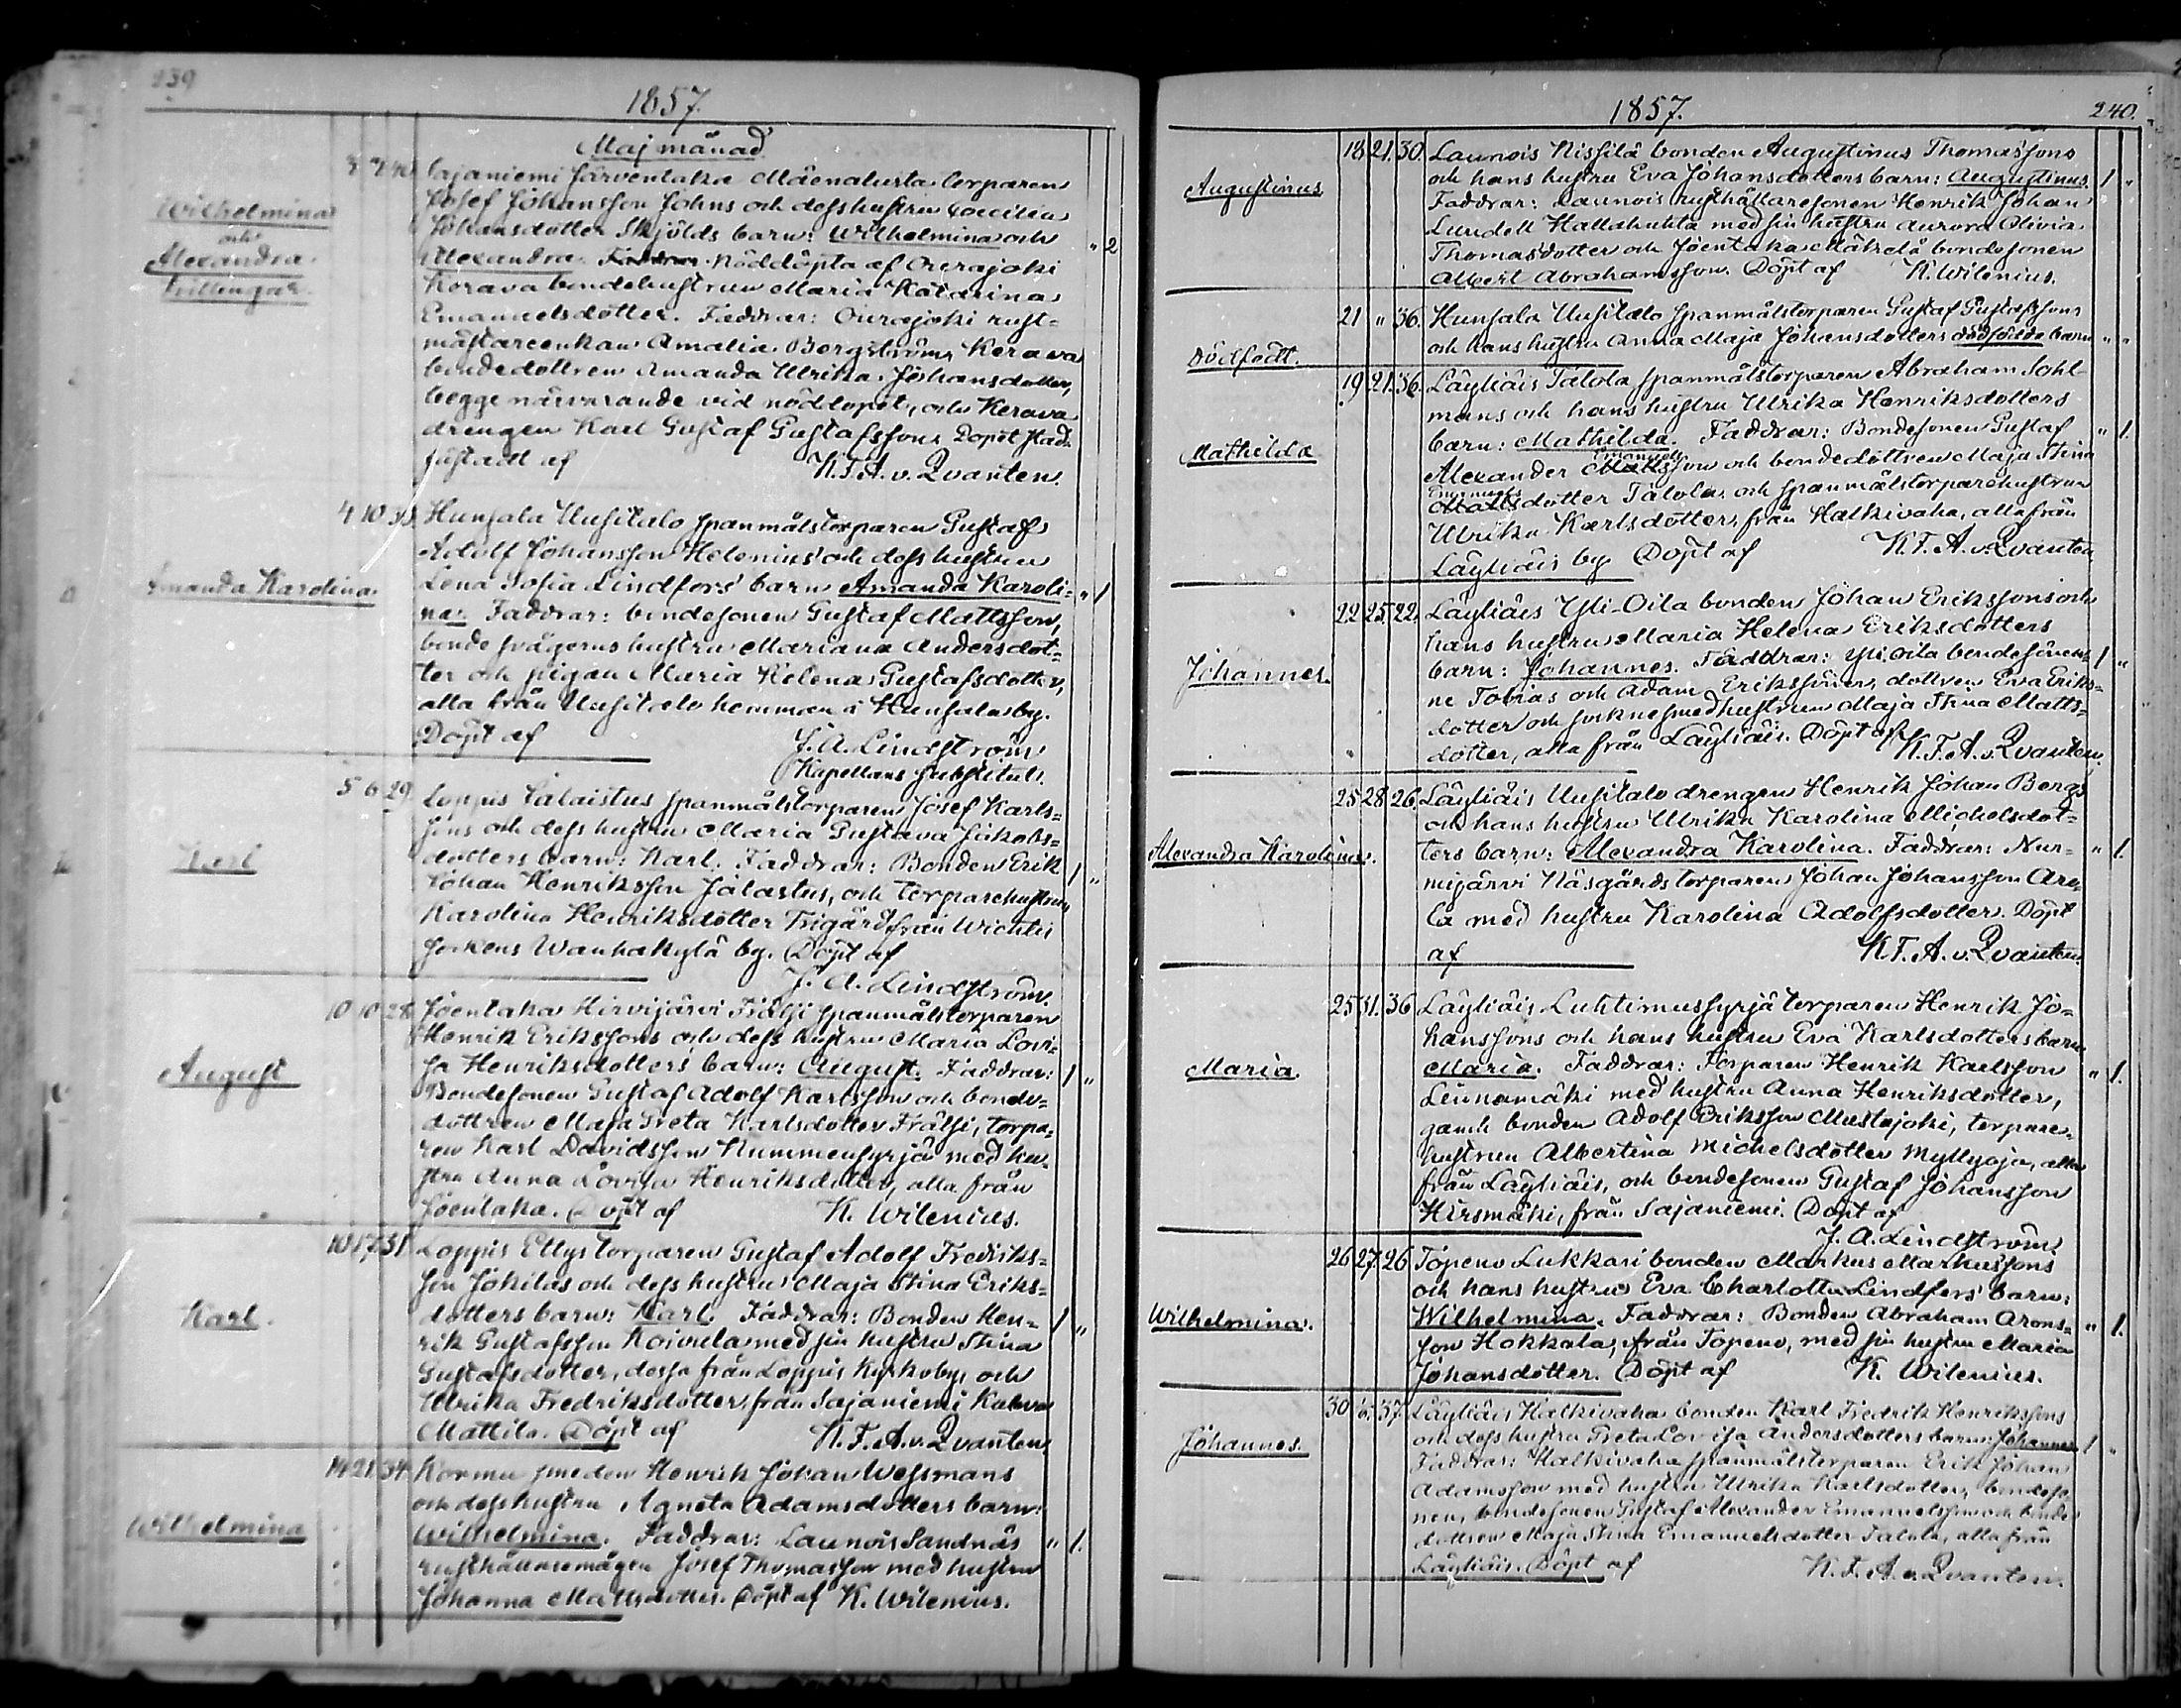 239
1857.
Maj månad
Wilhelmina
och
Alexandra
Tvillingar.
Sajaniemi Järventaka Mäenalusta torparen
Josef Johansson Johns och dess hustru Coecilia
Johansdotter Skjölds barn: Wilhelmina och " 2
Alexandra. Nöddöpta af Ourajoki
Kerava bondehustrun Maria Katarina
Emanuelsdotter. Faddrar: Ourajoki rust=
mästareenkan Amalia Borgström, Kerava
bondedottren Amanda Ulrika Johansdotter,
begge närvarande vid nöddopet, och Kerava
drengen Karl Gustaf Gustafsson. Dopet stad=
fästadt af K. F. A. v. Qvanten.
Amanda Karolina
4 10 Hunsala Uusitalo spanmålstorparen Gustaf
Adolf Johansson Helenius' och dess hustru
Lena Sofia Lindfors' barn Amanda Karoli= " 1
na. Faddrar: bondesonen Gustaf Mattsson,
bonde svågerns hustru Mariana Andersdot=
ter och pigan Maria Helena Gustafsdotter,
alla från Uusitalo hemman i Hunsala by.
Döpt af J. A. Lindström
Kapellans Substitut.
Karl
5 6 29. Loppis Jalaistus spanmålstorparen Josef Karls=
sons och dess hustru Maria Gustava Jakobs=
dotters barn: Karl. Faddrar: Bonden Erik 1 "
Johan Henriksson Jalastus, och torparehustrun
Karolina Henriksdotter Trigård från Wichtis
sockens Wanhakylä by. Döpt af
J. A. Lindström.
August
10 10 28 Joentaka Hirvijärvi Frälsi spanmålstorparen
Henrik Erikssons och dess hustru Maria Lovi=
sa Henriksdotters barn: August. Faddrar: 1 "
Bondesonen Gustaf Adolf Karlsson och bonde=
dottren Maja Greta Karlsdotter Frälsi, torpa=
ren Karl Davidsson Nummensyrjä med hu=
stru Anna Lovisa Henriksdotter, alla från
Joentaka. Döpt af K. Wilenius.
Karl.
10 17 31. Loppis Ellys torparen Gustaf Adolf Fredriks=
son Jokilas och dess hustru Maja Stina Eriks=
dotters barn: Karl. Faddrar: Bonden Hen= 1 "
rik Gustafsson Koivula med sin hustru Stina
Gustafsdotter, dessa från Loppis Kyrkoby, och
Ulrika Fredriksdotter, från Sajaniemi
Mattila. Döpt af K. F. A. v. Qvanten.
Wilhelmina
14 21 34. Kormu smeden Henrik Johan Wessmans
och dess hustru Agneta Adamsdotters barn:
Wilhelmina. Faddrar: Launois Sandnäs " 1.
rusthållaremågen Josef Thomasson med hustru
Johanna Mattsdotter. Döpt af K. Wilenius.
1857.
240.
Augustinus
18 21. 30. Launois Nissilä bonden Augustinus Thomassons
och hans hustru Eva Johansdotters barn: Augustinus. 1 "
Faddrar: Launois rusthållaresonen Henrik Johan
Lundell Hallakuhta med sin hustru Aurora Olivia
Thomasdotter och Joentaka Mäkelä bondesonen
Albert Abrahamsson. Döpt af K. Wilenius.
Dödfödt.
21 " 36. Hunsala Uusitalo spanmålstorparen Gustaf Gustafssons
och hans hustru Anna Maja Johansdotters dödfödde barn " "
Mathilda
19 21. 36. Läyliäis Talola spanmålstorparen Abraham Sohl=
mans och hans hustru Ulrika Henriksdotters
barn: Mathilda. Faddrar: Bondesonen Gustaf " 1.
Emanuels
Alexander Mattsson och bondedottren Maja Stina
Emanuels
Mattsdotter Talola, och spanmålstorparehustrun
Ulrika Karlsdotter, från Halkivaha, alla från
Läyliäis by. Döpt af K. F. A. v. Qvanten
Johannes.
22 25. 22. Läyliäis Yli-Oila bonden Johan Erikssons och
hans hustru Maria Helena Eriksdotters
barn: Johannes. Faddrar: Yli-Oila bondesöner= 1 "
ne Tobias och Adam Erikssöner, dottren Eva Eriks=
dotter och socknesmedhustrun Maja Stina Matts=
dotter, alla från Läyliäis. Döpt af K. F. A. v. Qvanten.
Alexandra Karolina.
25 28 26. Läyliäis Uusitalo drengen Henrik Johan Bergs
och hans hustru Ulrika Karolina Michelsdot=
ters barn: Alexandra Karolina. Faddrar: Nur= " 1.
mijärvi Näsgårds torparen Johan Johansson Are=
la med hustru Karolina Adolfsdotter. Döpt
af K. F. A. v. Qvanten.
Maria.
25 31. 36 Läyliäis Luhtimussyrjä torparen Henrik Jo=
hanssons och hans hustru Eva Karlsdotters barn
Maria. Faddrar: Torparen Henrik Karlsson " 1.
Linnamäki med hustru Anna Henriksdotter,
gamle bonden Adolf Eriksson Mustajoki, torpare=
hustrun Albertina Michelsdotter Myllyoja, alla
från Läyliäis, och bondesonen Gustaf Johansson
Hirsmäki, från Sajaniemi. Döpt af
J. A. Lindström.
Wilhelmina.
26 27. 26 Topeno Lukkari bonden Markus Markussons
och hans hustru Eva Charlotta Lindfors' barn:
Wilhelmina. Faddrar: Bonden Abraham Arons= " 1.
son Hokkala, från Topeno, med sin hustru Maria
Johansdotter. Döpt af K. Wilenius.
Johannes.
30 37. Läyliäis Halkivaha bonden Karl Fredrik Henrikssons
och dess hustru Greta Lovisa Andersdotters barn: Johannes. 1 "
Faddrar: Halkivaha spanmålstorparen Erik Johan
Adamsson med hustru Ulrika Karlsdotter, bondeso
nen, bondesonen Gustaf Alexander Emanuelsson och bonde
dottren Maja Stina Emanuelsdotter Talola, alla från
Läyliäis. Döpt af K. F. A. v. Qvanten.